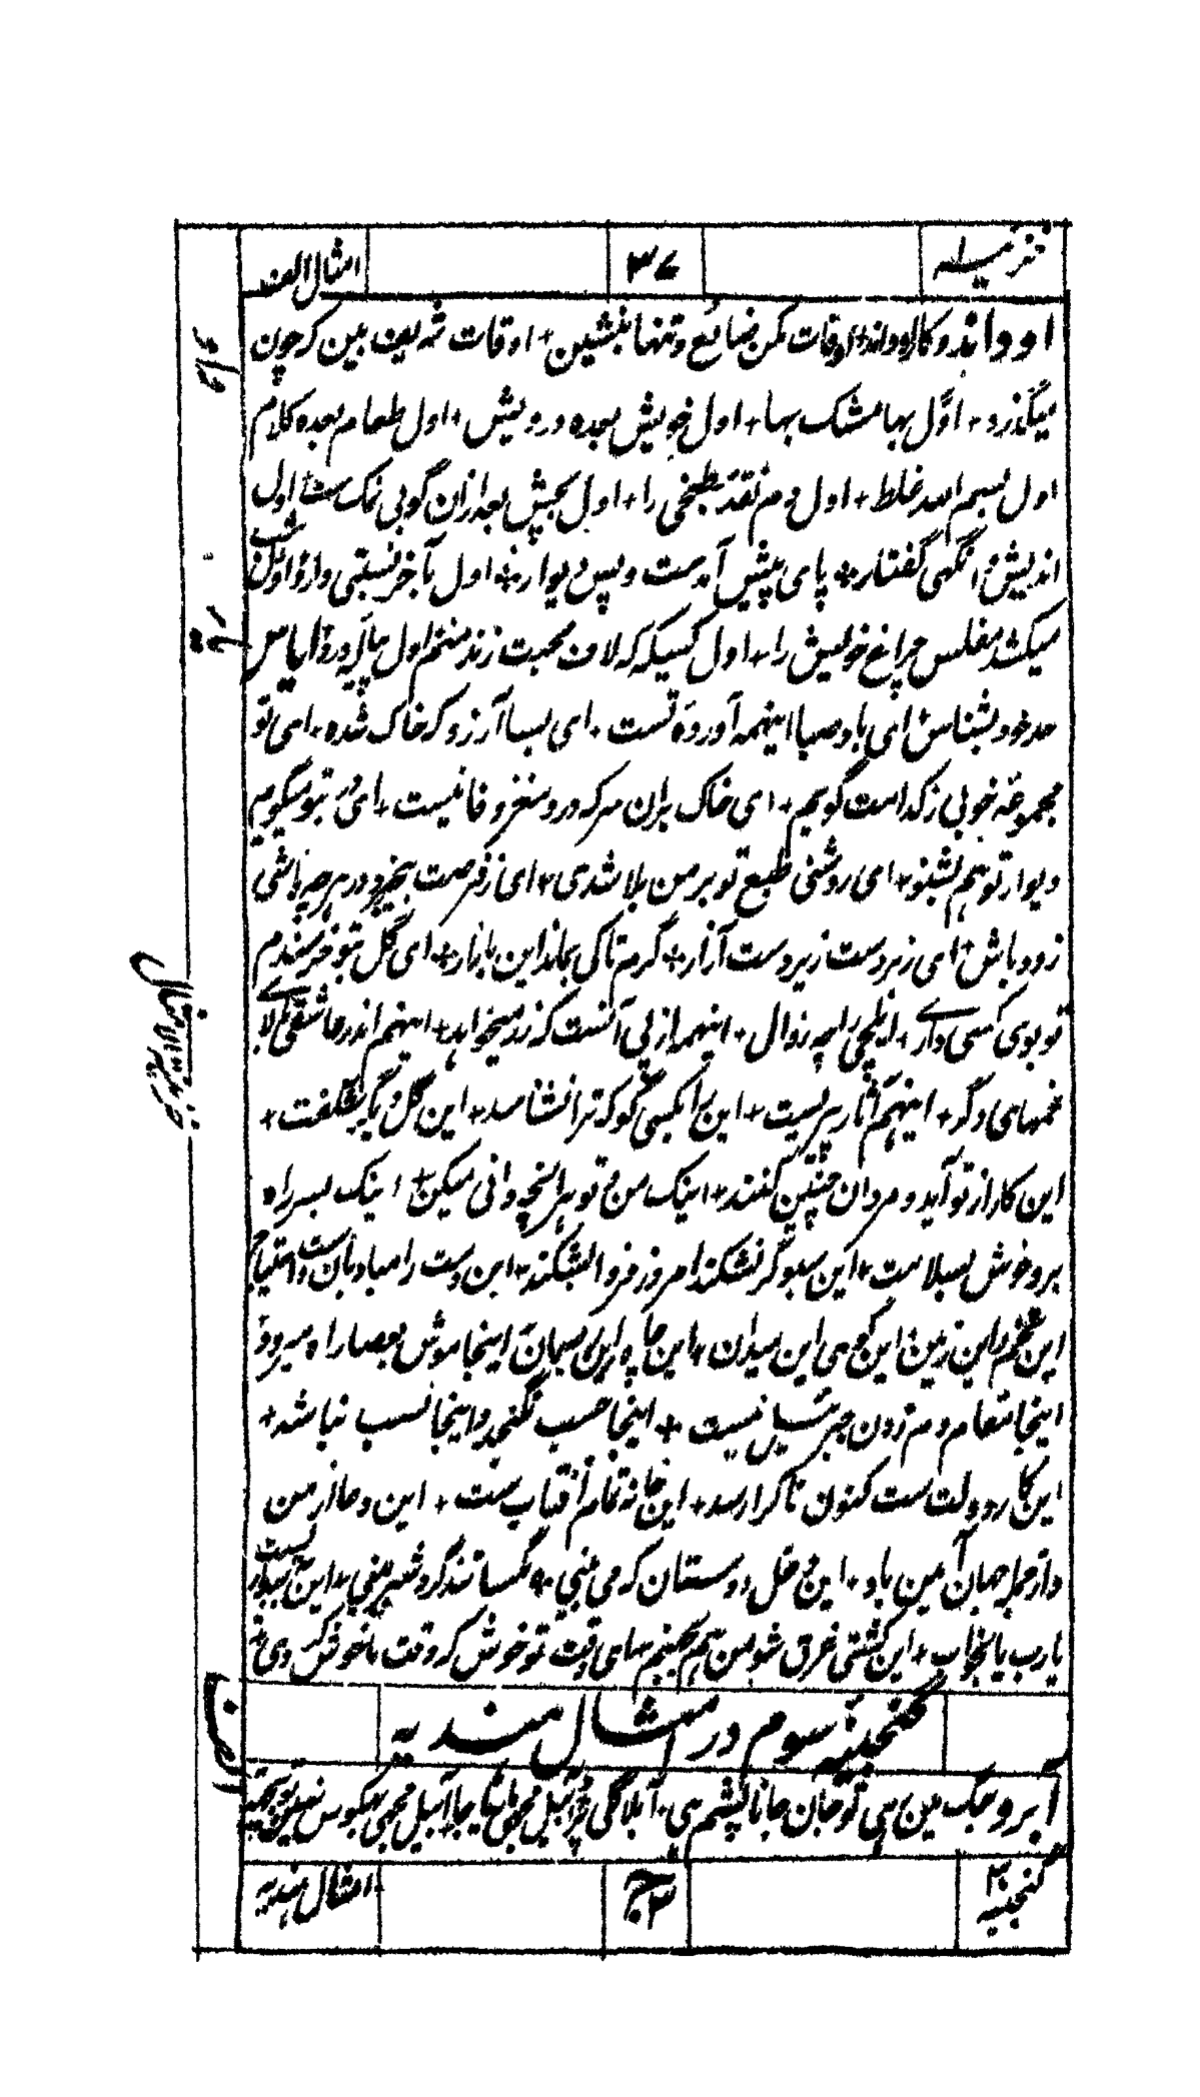 امثال الف
۳۷
او داند و کار او داند + اوقات مکن ضائع و تنها بنشین + اوقات شریف بین که چون
میگذرد + اوّل بها مشک بها + اول خویش بعده درویش + اول طعام بعده کلام
اول بسم الله غلط + اول دم نقد بطخی را + اول بچش بعد ازان گو بی نمک ست + اول
اندیش وانگهی گفتار + پای پیش آمدست و پس دیوار + اول بآخر نسبتی دارد + اول شب
میکشد مفلس چراغ خویش را + اول کسیکه لاف محبت زند منم + اول پیاله و درد + ایاس
حد خود بشناس + ای باد صبا اینهمه آورده تست + ای بسا آرزو که خاک شده + ای تو
مجموعه خوبی ز کدامت گویم + ای خاک بران سر که درو مغز وفا نیست + ای در بتو میگویم
دیوار تو هم بشنو + ای روشنی طبع تو بر من بلا شدی + ای ز فرصت بیخبر در هر چه باشی
زود باش + ای زبردست زیردست آزار + گرم تا کی بماند این بازار + ای گل بتو خرسندم
تو بوی کسی داری + ایلچی را چه زوال + اینهمه از پی آنست که زر میخواهد + اینهم اندر عاشقی بالای
غمهای دگر + اینهم آثار پیریست + این را بکسی گو که ترا نشناسد + این گل دیگر شگفت +
این کار از تو آید و مردان چنین کنند + اینک من و تو هر آنچه دانی میکن + اینک بسر راه
برو خوش بسلامت + این سبو گر نشکند امروز فردا بشکند + این دست را مبادا بان دست احتیاج
این خم و این زمین این گوی این میدان + این چاه و این ریسمان + اینجا موش بعصا راه میرود
اینجا مقام دم زدن جبرئیل نیست + اینجا حسب نگنجد و اینجا نسب نباشد +
این کار دولت ست کنون تا کرا رسد + این خانه تمام آفتاب ست + این دعا از من
و از جمله جهان آمین باد + این دغل دوستان که می بینی + مگسانند گرد شیرینی + این که می بینم به بیداریست
یارب یا بخواب + این کشتی غرق شو من هم بجهنم + ای وقت تو خوش که وقت ما خوش کردی
گنجینه سوم در امثال هندیه
آبرو جگ مین رهی تو جان جانا پشم هی
گنجینه ۳
۳
امثال هندیه